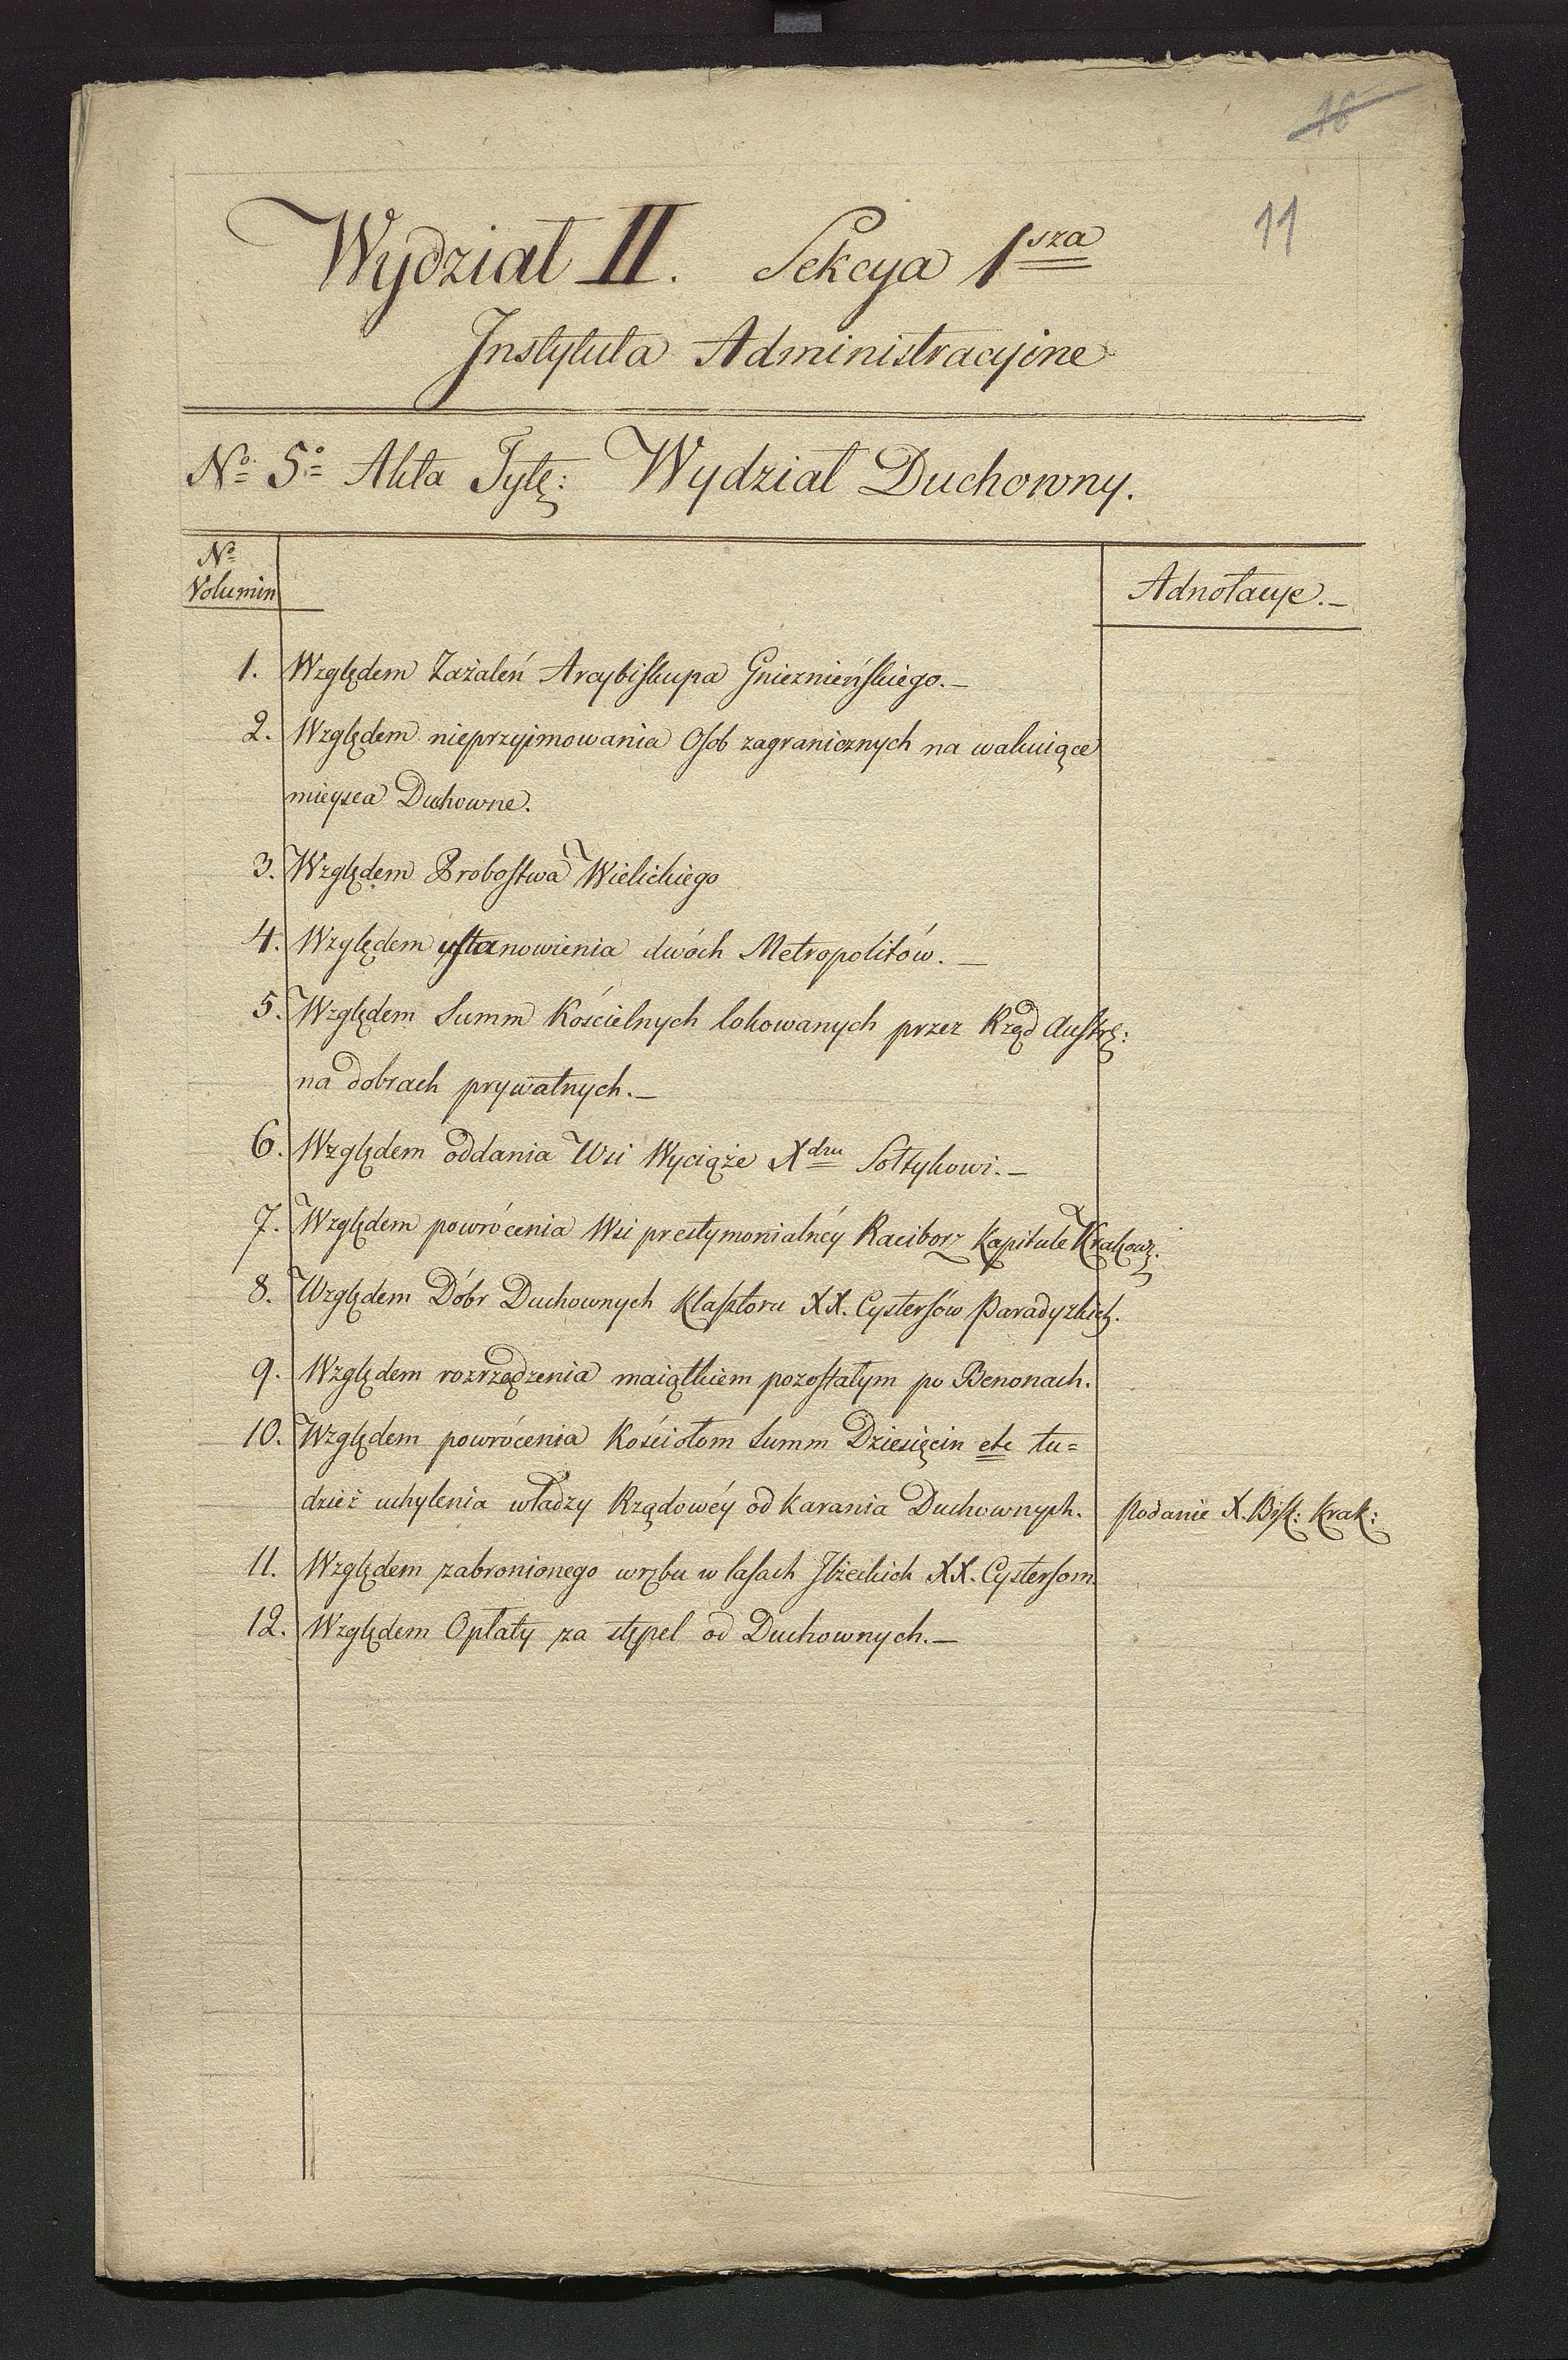 16
11
Wydział II. Sekcya 1sza
Instytuta Administracyine
No 5o Akta Tytę: Wydział Duchowny.
No
Volumin
Adnotacye.-
1. Względem Zażaleń Arcybiskupa Gnieznieńskiego.-
2. Względem nieprzyimowania Osob zagranicznych na wakuiące
mieysca Duchowne.
3. Względem Probostwa Wielickiego
4. Względem ustanowienia dwóch Metropolitów.-
5. Względem Summ Kościelnych lokowanych przez Rząd Austrę:
na dobrach prywatnych.-
6. Względem oddania Wsi Wyciąże Xdzu Sołtykowi.-
7. Względem powrócenia Wsi prestymonialnéy Raciborz Kapitule Krakowę.
8. Względem Dóbr Duchownych Klasztoru XX. Cystersów Paradyzkich.
9. Względem rozrządzenia maiątkiem pozostałym po Benonach.
10. Względem powrócenia Kościołom Summ Dziesięcin etc tu=
dzież uchylenia władzy Rządowéy od karania Duchownych. Podanie X. Bisk: Krak:
11. Względem zabronionego wrębu w lasach Iłżeckich XX. Cystersom.
12. Względem Opłaty za stępel od Duchownych.-